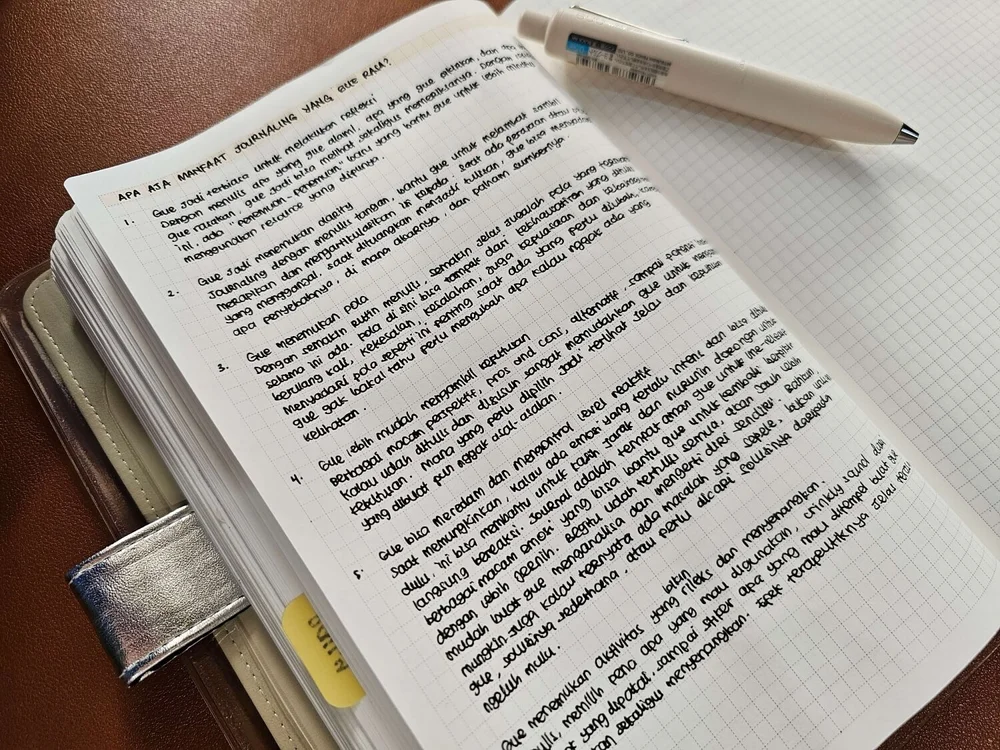 APA AJA MANFAAT JOURNALING YANG GUE RASA?
1. Gue jadi terbiasa untuk melakukan refleksi
Dengan menulis apa yang gue alami, apa yang gue pikirkan dan apa
gue rasakan, gue jadi bisa melihat sekaligus memeriksanya. Dengan
ini, ada "penemuan-penemuan" baru yang bantu gue untuk lebih
menggunakan resource yang dipunya.
2. Gue jadi menemukan clarity
Journaling dengan menulis tangan, bantu gue untuk melambat sambil
merapikan dan mengartikulasikan isi kepala. Saat ada perasaan atau
yang mengganjal, saat dituangkan menjadi tulisan, gue bisa
apa penyebabnya, di mana akarnya, dan paham sumbernya
3. Gue menemukan pola
Dengan semakin rutin menulis, semakin jelas jugalah pola yang
selama ini ada. Pola di sini bisa tampak dari kekhawatiran yang
berulang kali, kekesalan, kesalahan, juga kepuasan dan
Menyadari pola seperti ini penting saat ada yang perlu diubah,
gue gak bakal tahu perlu mengubah apa kalau nggak ada yang
kelihatan.
4. Gue lebih mudah mengambil keputusan
Berbagai macam perspektif, pros and cons, alternatif, sampai
kalau udah ditulis dan disusun sangat memudahkan gue untuk
keputusan. Mana yang perlu dipilih jadi terlihat jelas dan
yang dibuat pun nggak asal-asalan.
5. Gue bisa meredam dan mengontrol level reaktif
Saat memungkinkan, kalau ada emosi yang terlalu intens dan bisa ditulis
dulu, ini bisa membantu untuk kasih jarak dan nurunin dorongan untuk
langsung bereaksi. Journal adalah tempat aman gue untuk me-release
berbagai macam emosi yang bisa bantu gue untuk kembali berpikir
dengan lebih jernih. Begitu udah tertulis semua, akan jauh lebih
mudah buat gue menganalisa dan mengerti diri sendiri. Bahkan,
mungkin juga kalau ternyata ada masalah yang sepele,
gue, solusinya sederhana, atau perlu dicari solusinya daripada
ngeluh mulu.
Gue menemukan aktivitas yang rileks dan menyenangkan.
memilih pena apa yang mau digunakan, crinkly sound dari
yang dipakai, sampai stiker apa yang mau ditempel buat gue
sekaligus menyenangkan. Efek terapeutiknya selalu